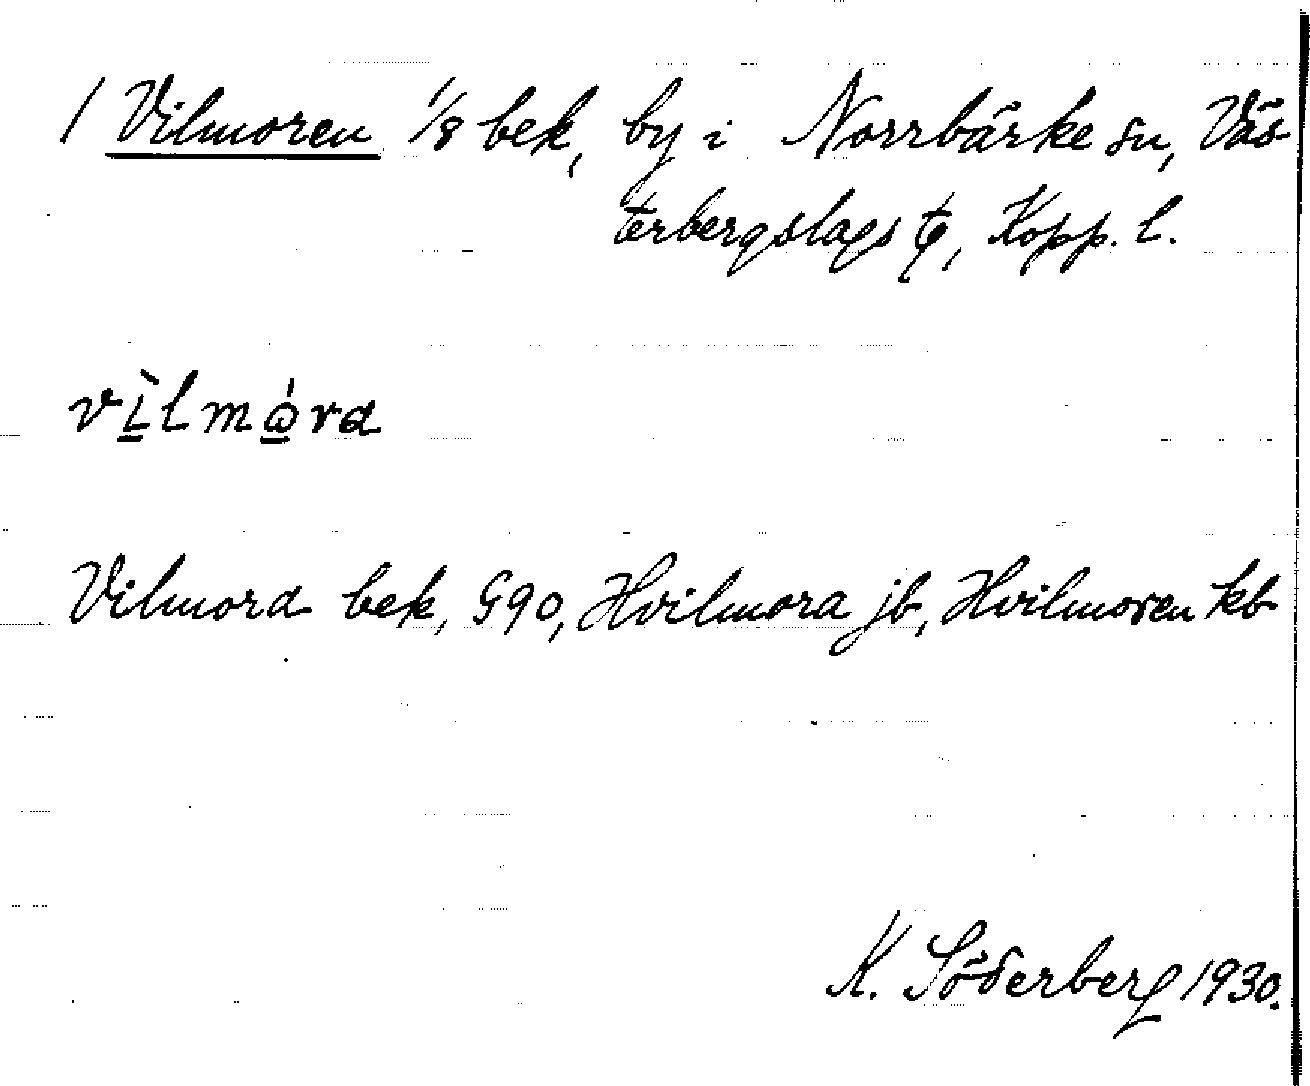 / Vilmoren 1/8 bek, by i Norrbärke sn, Väs-
terbergslags , Kopp. l.
vìlmɷ́ra
Vilmora bek, G90, Hvilmora jb, Hvilmoren kb
K. Söderberg 1930.